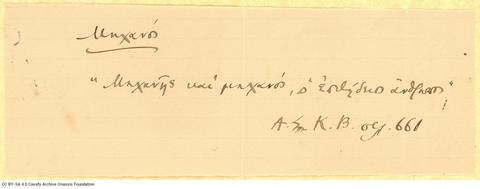 Μηχανός
"Μηχανῆς καὶ μηχανός, ὁ ἐπιτήδειος ἄνθρωπος"
Α. Σ. Κ. Β. σελ. 661
CC BY-SA 4.0 Cavafy Archive Onassis Foundation